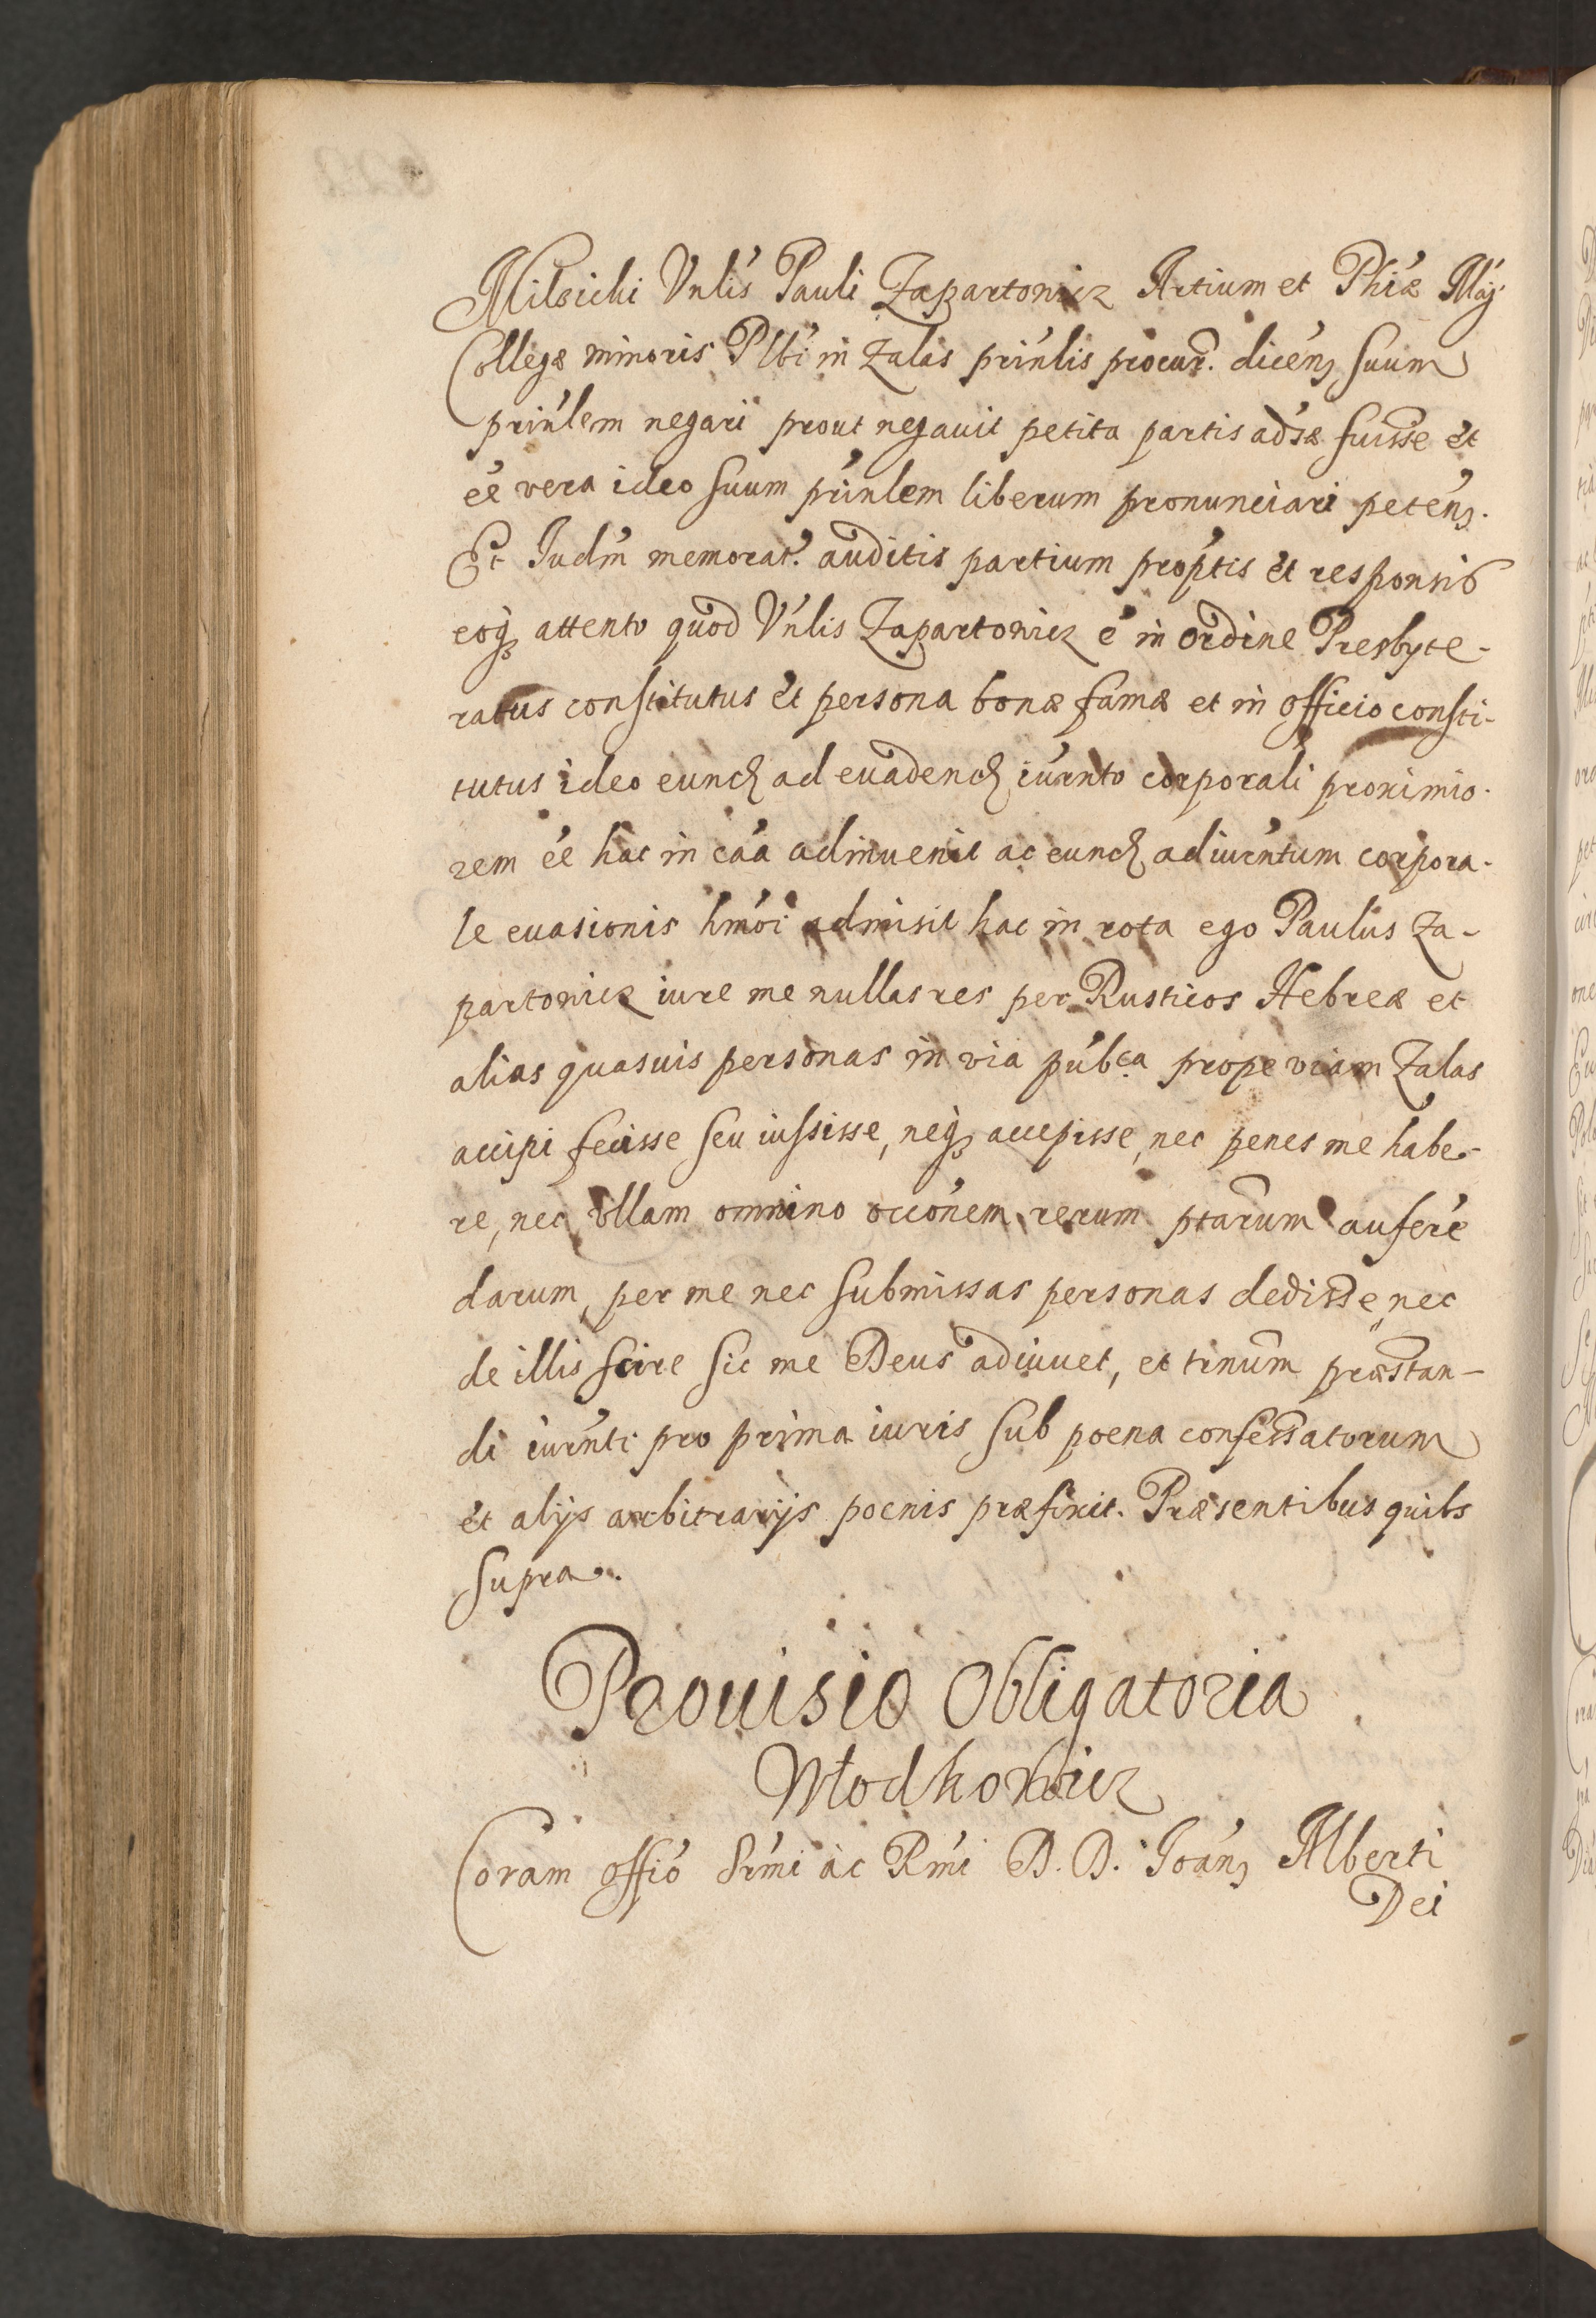 Milsicki Vnlis Pauli Zapartowicz Artium et Phiæ Mag
Collegæ minoris Plbi in Zalas prinlis procur. dicens suum
prinlem negari prout negauit petita partis adsæ fuisse et
ee vera ideo suum prinlem liberum pronunciari petens.
Et Judm memorat. auditis partium proptis et responsis
eoqz attento quod Vnlis Zapartowicz e in ordine Presbyte-
ratus constitutus et persona bonæ famæ et in officio consti-
tutus ideo eund ad euadend iurnto corporali proximio-
rem ee hac in caa adinuenit ac eund ad iurntum corpora-
le euasionis hmoi admisit hac in rota ego Paulus Za-
partowicz iure me nullas res per Rusticos Hebreæ et
alias quasuis personas in via pubca prope viam Zalas
accipi fecisse seu iussisse, neqz accepisse, nec penes me habe-
re, nec vllam omnino occonem rerum ptarum aufere
darum, per me nec submissas personas dedisse, nec
de illis scire sic me Deus adiuuet, et trnum præstan-
di iurnti pro prima iuris sub poena confessatorum
et alijs arbitrarijs poenis præfixit. Præsentibus quibs
supra.
Prouisio Obligatoria
Włodkowicz
Coram offio Srmi ac Rmi D. D. Joans Alberti
Dei